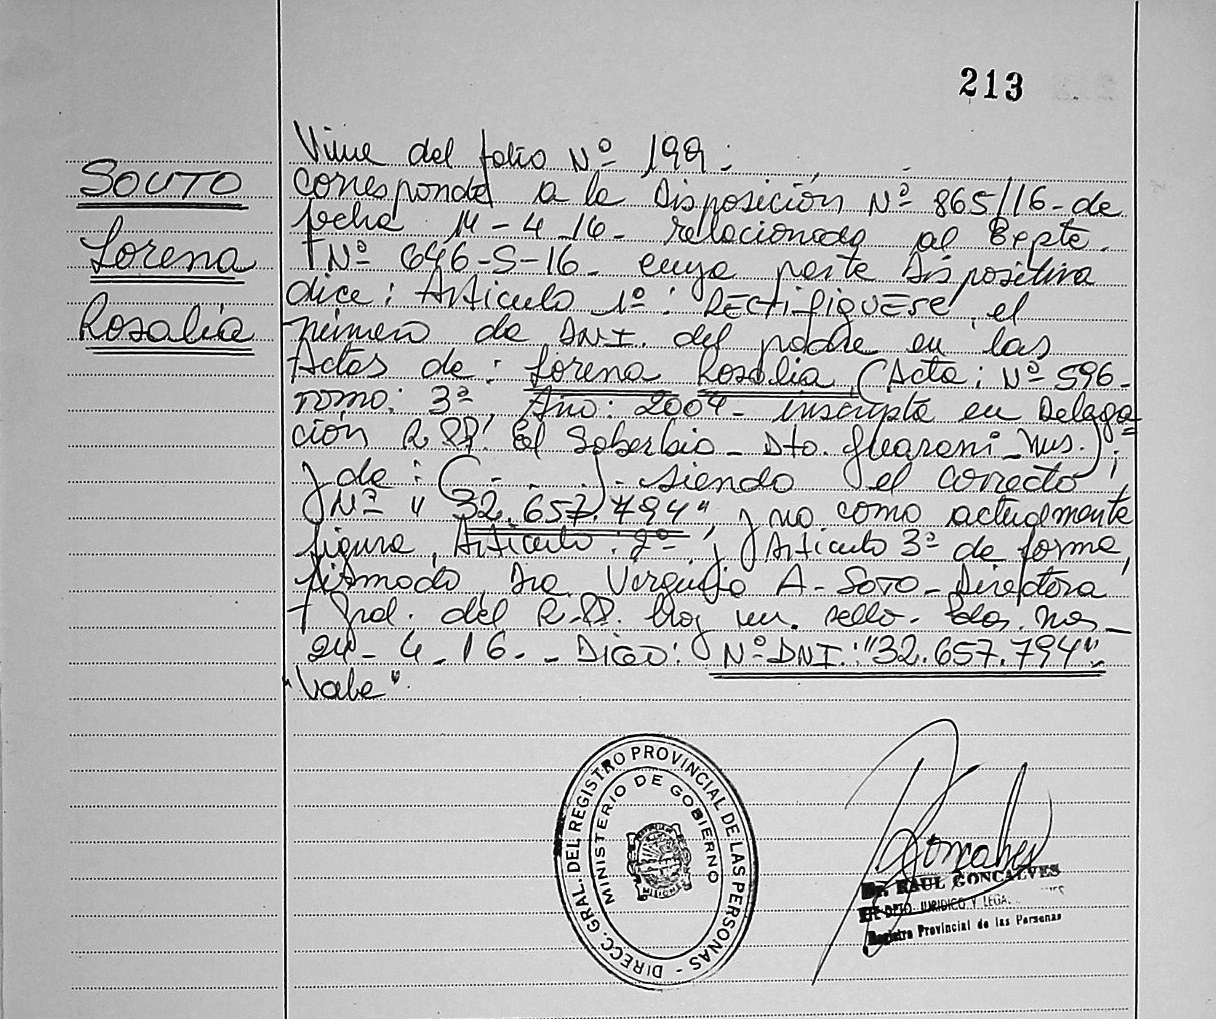 213
SOUTO
Lorena
Rosalia
Viene del folio Nº 199.
corresponde a la Disposición Nº 865/16-de
fecha 14-4-16- relacionada al Expte.
Nº 646-S-16- cuya parte Dispositiva
dice: Artículo 1º: RECTIFIQUESE, el
número de DNI. del padre en las
Actas de: Lorena Rosalia, (Acta: Nº 596-
Tomo: 3º, Año: 2004- inscripta en Delega=
ción R.PP. El Soberbio- Dto. Guarani-Mns.);
y de: (- . . . .)- siendo el correcto,
Nº " 32.657.494", y no como actualmente
figura, Artículo: 2º y Artículo 3º de forma,
firmado Dra Virginia A- Soto- Directora
Gral. del R.PP. Hay un sello- Pdas. Mns-
24-4-16.- DIGO: Nº DNI.:"32.657.794"-
"Vale".
DIRECC. GRAL. DEL REGISTRO PROVINCIAL DE LAS PERSONAS -
MINISTERIO DE GOBIERNO
MISIONES
Goncalves
Dr. RAUL GONCALVES
DPTO JURIDICO Y LEGAL
Registro Provincial de las Personas